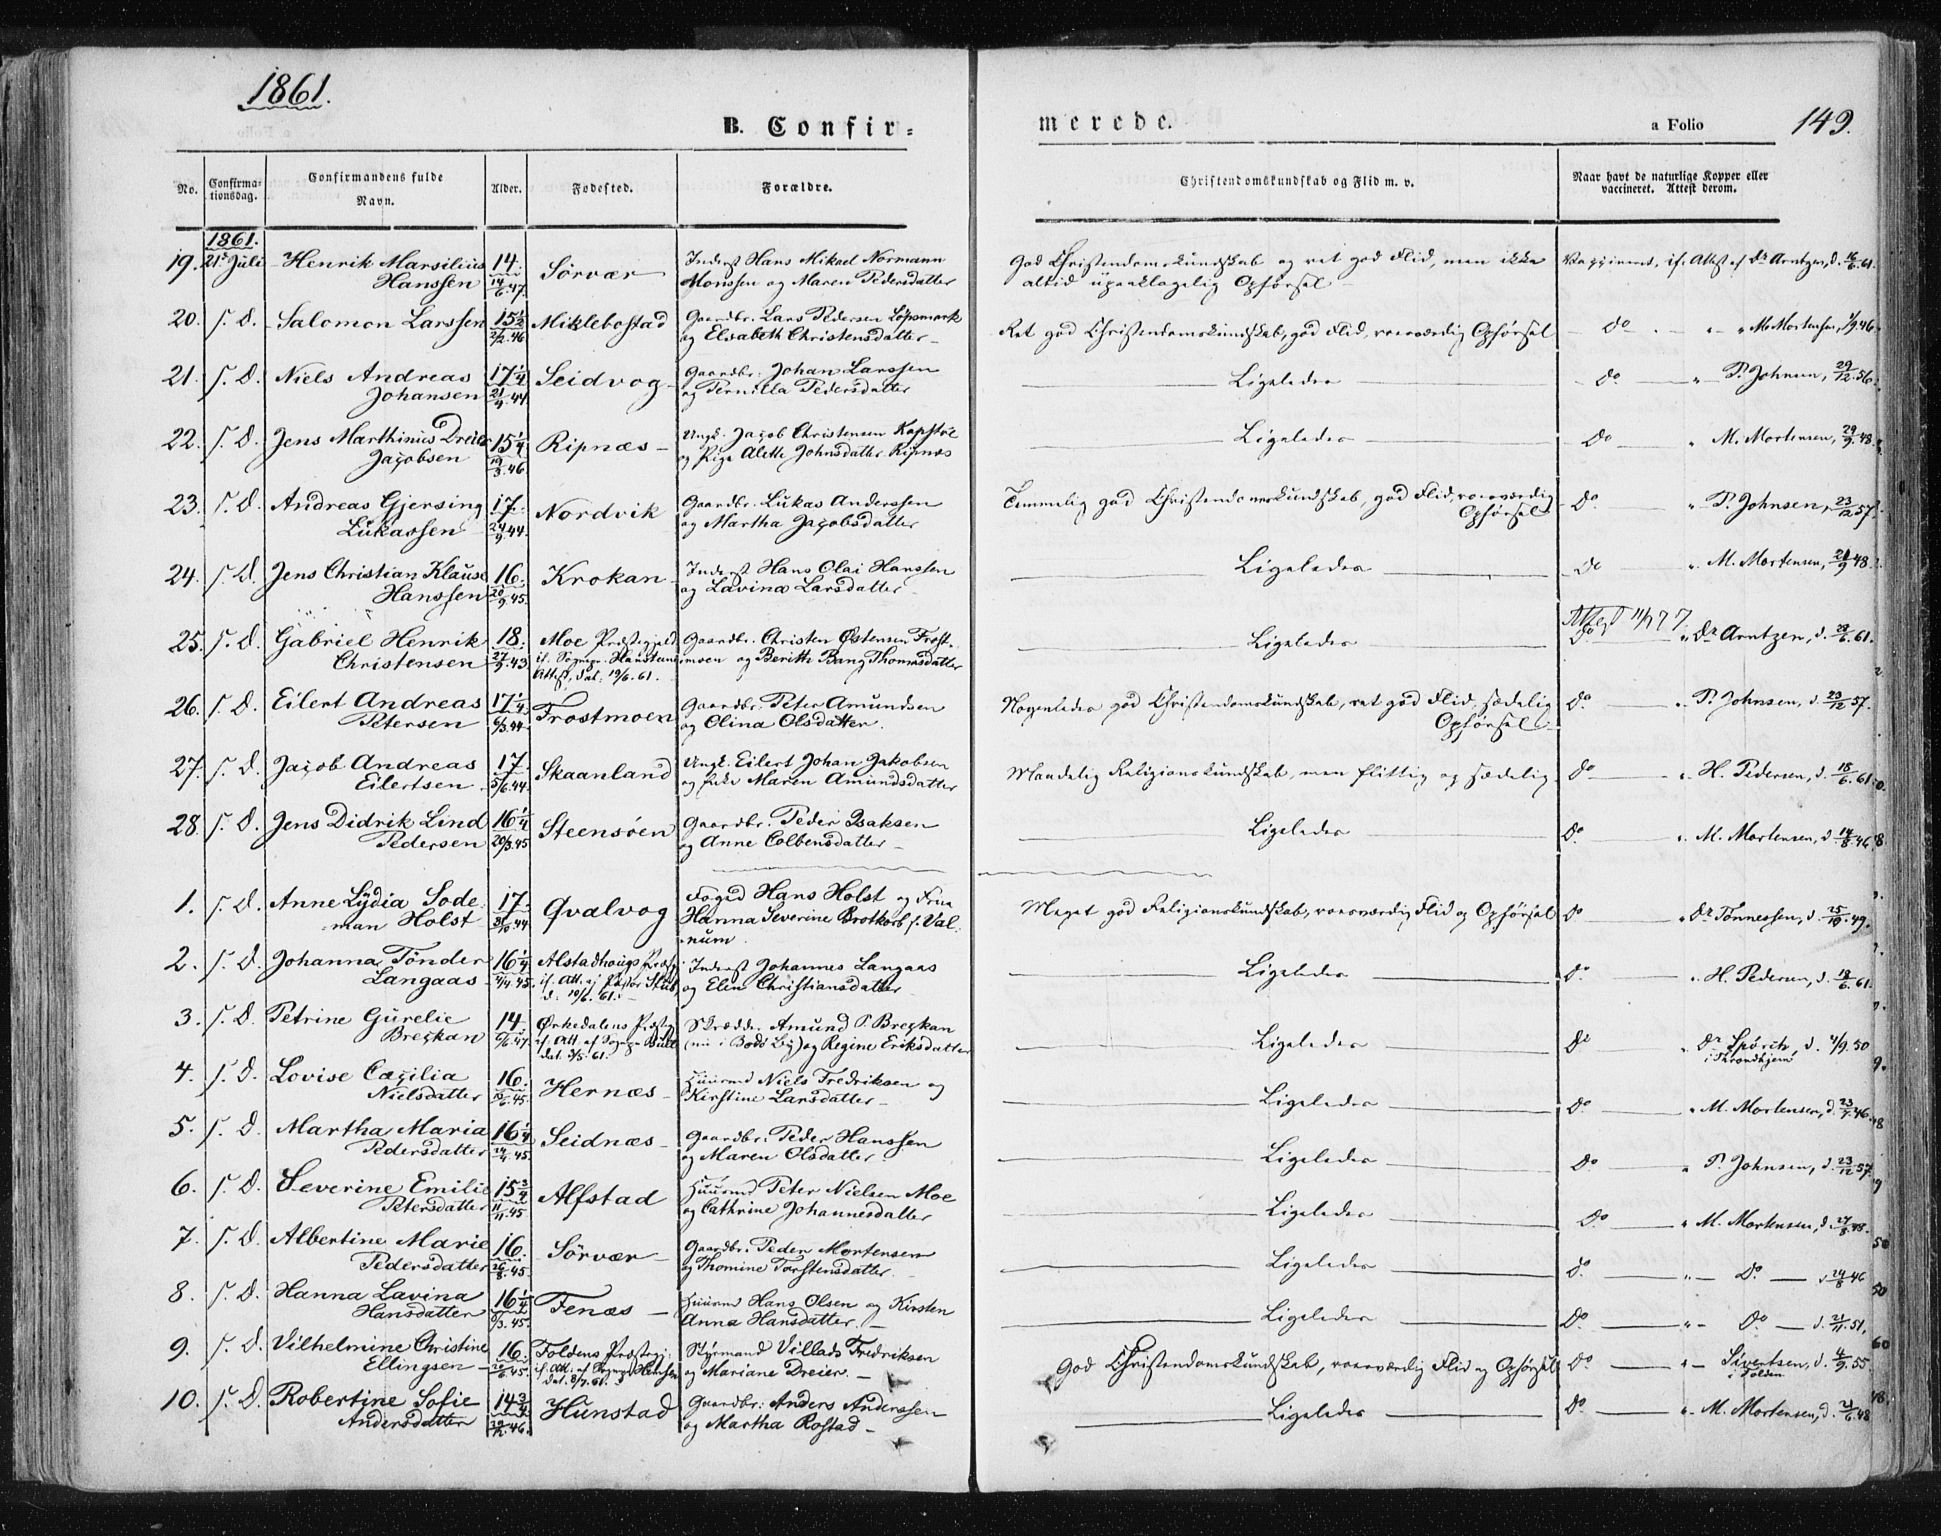 1861.
B. Confir-
merede.
a Folio
149.
No.
Confirma-
tionsdag.
Confirmandens fulde
Navn.
Alder.
Fødested.
Forældre.
Christendomskundskab og Flid m. v.
Naar havt de naturlige Kopper eller
vaccineret. Attest derom.
1861.
19. 21. Juli Henrik Marsilius Hanssen 14. 14/6.47. Sörvær Inderst Hans Mikael Normann Monssen og Maren Pedersdatter God Christendomskundskab og ret god Flid, men ikke altid upaaklagelig Opførsel Vaccineret, if. Attest af Dr Arntzen, d. 16/6.61.
20. s. D. Salomon Larssen 15 1/2 2/2.46 Miklebostad Gaardbr. Lars Pedersen Löpsmark og Elsabeth Christensdatter Ret god Christendomskundskab, god Flid, roesværdig Opførsel do " M. Mortensen, 1/9.46
21. s. D. Niels Andreas Johansen 17 1/4 21/4.44 Seidvog Gaardbr. Johan Larssen og Pernilla Pedersdatter Ligeledes do " P. Johnsen, 29/12.56
22. s. D. Jens Marthinus Dreier Jacobsen 15 1/4 19/3.46 Ripnæs Ungk. Jacob Christensen og Pige Alette Johnsdatter Ripnæs Ligeledes Do " M. Mortensen, 29/9.48
23. s. D. Andreas Gjersing Lukassen 17. 24/9.44. Nordvik Gaardbr. Lukas Anderssen og Martha Jacobsdatter Temmelig god Christendomskundskab, god Flid, roesværdig Opførsel Do. " P. Johnsen, 23/12 57
24. s. D. Jens Christian Klause Hanssen 16. 20/9.45. Krokan Inderst Hans Olai Hanssen og Lavina Larsdatter Ligeledes Do " M. Mortensen, 21/9 48
25. s. D. Gabriel Henrik Christensen 18. 27/9.43 Moe Præstegjeld if. Sogne. Attest, dat. 19/6.61. Gaardbr. Christen Östensen Frostmoen og Berith Bang Thomasdatter Ligeledes Attest 11/7 77 do " Dr Arntzen, d. 23/6.61.
26. s. D. Eilert Andreas Petersen 17 1/4 6/3.44 Frostmoen Gaardbr. Peter Amundsen og Olina Olsdatter. Nogenledes god Christendomskundskab, ret god Flid, sædelig Opførsel Do. " P. Johnsen, d. 23/12 57.
27. s. D. Jacob Andreas Eilertsen 17 5/6.44. Skaanland Ungk. Eilert Johan Jakobsen og Maren Amundsdatter Maadelig Religionskundskab, men flittig og sædelig do " H. Pedersen, d. 18/6.61.
28. s. D. Jens Didrik Lind Pedersen 16 1/4 20/3.45 Steensöen Gaardbr. Peder Isaksen og Anne Colbensdatter Ligeledes Do. " M. Mortensen, d. 14/8.46.
1. s. D. Anne Lydia Sodeman Holst 17. 31/10.44 Qvalvog Foged Hans Holst og Frue Hanna Severine Brotkorb f. Valnum. Meget god Religionskundskab, roesværdig Flid og Opførsel do " Dr Tönnessen, d. 25/10.49.
2. s. D. Johanna Tönder Langaas 16 1/4 4/4.45. Alstadhougs Præstg. if. Att. af Pastor d. 10/6.61. Inderst Johannes Langaas og Elen Christiansdatter Ligeledes do. " H. Pedersen, d. 18/6.61.
3. s. D. Petrine Gurelie Breckan 14. 6/6.47. Örkedalens Præstg. if. Att. af Sognepr. Bull dat. 3/5.61. Skrædder Amund P. Breckan (nu i Bodö By) og Regine Eriksdatter Ligeledes Do " Dr Spörck, d. 4/9.50 i Throndhjem
4. s. D. Lovise Cæcilia Nielsdatter 16. 10/6.45. Hernæs Huusmd Niels Fredriksen og Kirstine Larsdatter Ligeledes Do. " M. Mortensen, d. 23/7.46
5. s. D. Martha Maria Pedersdatter 16 1/4 24/4.45. Seidnæs Gaardbr. Peder Hanssen og Maren Olsdatter Ligeledes Do " P. Johnsen, d. 23/12 57.
6. s. D. Severine Emilie Petersdatter 15 3/4 11/11.45 Alfstad Huusmd Peter Nielsen Moe og Cathrine Johannesdatter Ligeledes Do " M. Mortensen, d. 27/8.48.
7. s. D. Albertine Marie Pedersdatter 16. 26/8.45. Sörvær Gaardbr. Peder Mortensen og Thomine Torstensdatter. Ligeledes Do. " Do. d. 24/8 46
8. s. D. Hanna Lavina Hansdatter 16 1/4 6/3.45. Fenæs Huusmd Hans Olsen og Kirsten Anna Hansdatter. Ligeledes Do. " Do d. 21/11.51,
9. s. D. Vilhelmine Christine Ellingsen 16. 20/6.45. Foldens Præstegj. if. Att. af Sognepr. dat. 8/7.61. Styrmand Villads Fredriksen og Mariane Dreier. God Christendomskundskab, roesværdig Flid og Opførsel Do. " Sivertsen, d. 4/9.55 i Folden
10. s. D. Robertine Sofie Andersdatter 14 3/4 29/12.46. Hunstad Gaardbr: Anders Anderssen og Martha Rostad Ligeledes Do. " M. Mortensen, d. 21/6.48